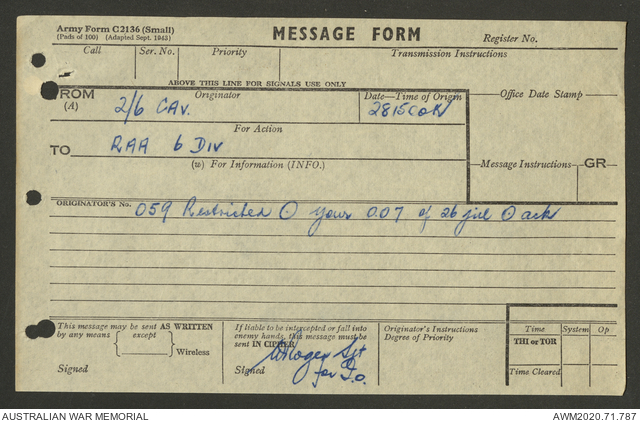 Army Form C2136 (Small)
(Pads of 100) (Adapted Sept. 1943)
MESSAGE FORM
Register No.
Call Ser. No. Priority Transmission Instructions
ABOVE THIS LINE FOR SIGNALS USE ONLY
FROM (A) Originator Date—Time of Origin Office Date Stamp
2/6 CAV.
For Action
TO RAA 6 DIV
(w) For Information (INFO.)
Message Instructions GR
ORIGINATOR'S No. 059 Restricted O your 007 of 26 jul O ack
This message may be sent AS WRITTEN
by any means except
Wireless
Signed
If liable to be intercepted or fall into
enemy hands, this message must be
sent IN CIPHER
Signed Sgt
for I.O.
Originator's Instructions
Degree of Priority
Time System Op
THI or TOR
Time Cleared
AUSTRALIAN WAR MEMORIAL AWM2020.71.787